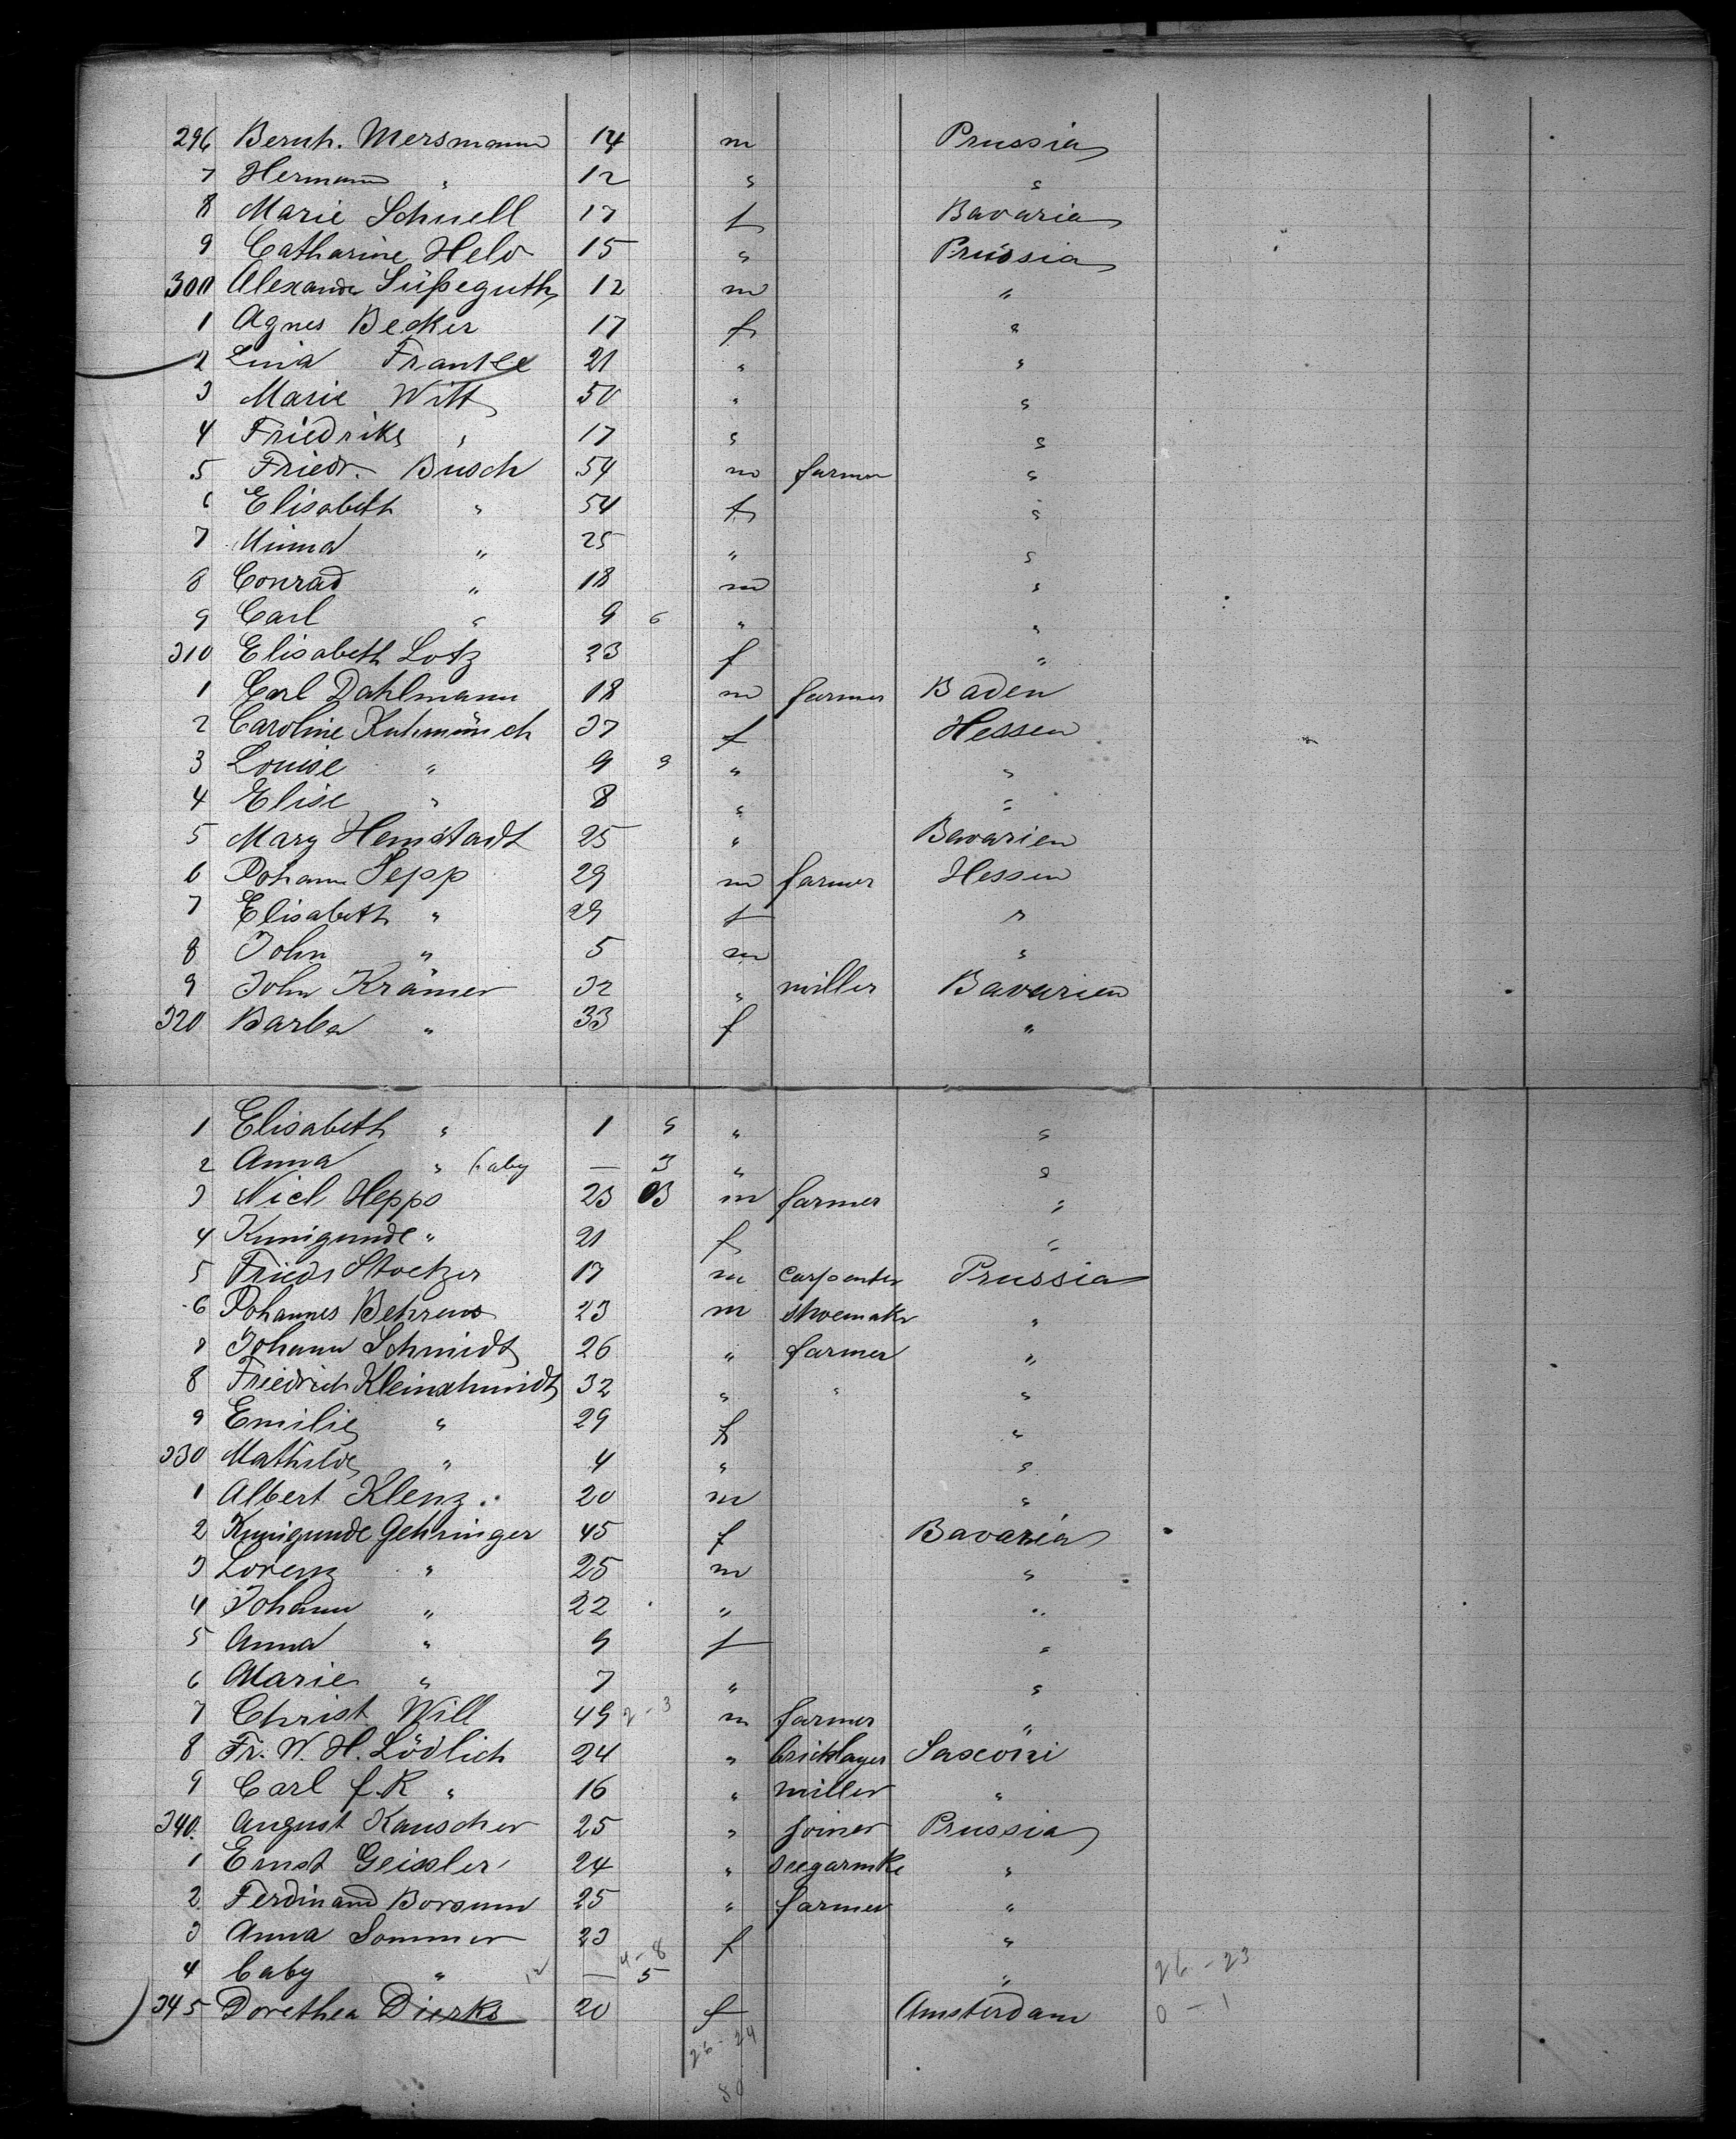 296 Bernh. Mersmann 14 m Prussia
7 Hermann " 12 " "
8 Marie Schnell 17 f Bavaria
9 Catharine Held 15 " Prussia
300 Alexander Süßeguth 12 m "
1 Agnes Becker 17 f "
2 Lina Franke 21 " "
3 Marie Witt 50 " "
4 Friedrike " 17 " "
5 Friedr. Busch 54 m farmer "
6 Elisabeth " 54 f "
7 Minna " 25 " "
8 Conrad " 18 m "
9 Carl " 9 6 " "
310 Elisabeth Lotz 23 f "
1 Carl Dahlmann 18 m farmer Baden
2 Caroline Kuhmünch 37 f Hessen
3 Louise " 9 9 " "
4 Elise " 8 " "
5 Mary Hemstadt 25 " Bavarien
6 Johann Sepp 29 m farmer Hessen
7 Elisabeth " 29 f "
8 John " 5 m "
9 John Krämer 32 " miller Bavarien
320 Barba " 33 f "
1 Elisabeth " 1 9 " "
2 Anna " baby — 3 " "
3 Nicl Hepps 23 m farmer "
4 Kunigunde " 21 f "
5 Friedr Stoetzer 17 m carpenter Prussia
6 Johannes Behrens 23 m shoemakr "
7 Johann Schmidt 26 " farmer "
8 Friedrich Kleinschmidt 32 " " "
9 Emilie " 29 f "
330 Mathilde " 4 " "
1 Albert Klenz. 20 m "
2 Kunigunde Gehringer 45 f Bavaria
3 Lorenz " 25 m "
4 Johann " 22 " "
5 Anna " 9 f "
6 Marie " 7 " "
7 Christ Will 49 2-3 m farmer "
8 Fr. W. H. Lödlich 24 " bricklayer Saxoni
9 Carl f. R " 16 " miller "
340. August Kauscher 25 " joiner Prussia
1 Ernst Geissler 24 " seegarmke "
2 Ferdinand Borsum 25 " farmer "
3 Anna Sommer 23 f "
4-8
4 baby " 12 — 5 " 26-23
345 Dorethea Dierks 20 f Amsterdam 0-1
26-24
80